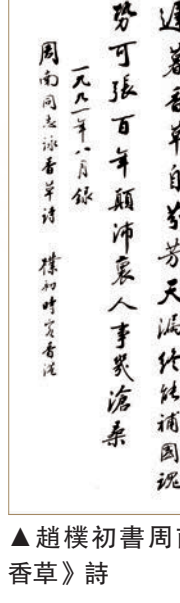 遲暮香草自芬芳天漏終能補國魂
勢可張百年顛沛裏人事幾滄桑
一九九一年八月録
周南同志詠香草詩 樸初時客香港
▲趙樸初書周南
香草》詩